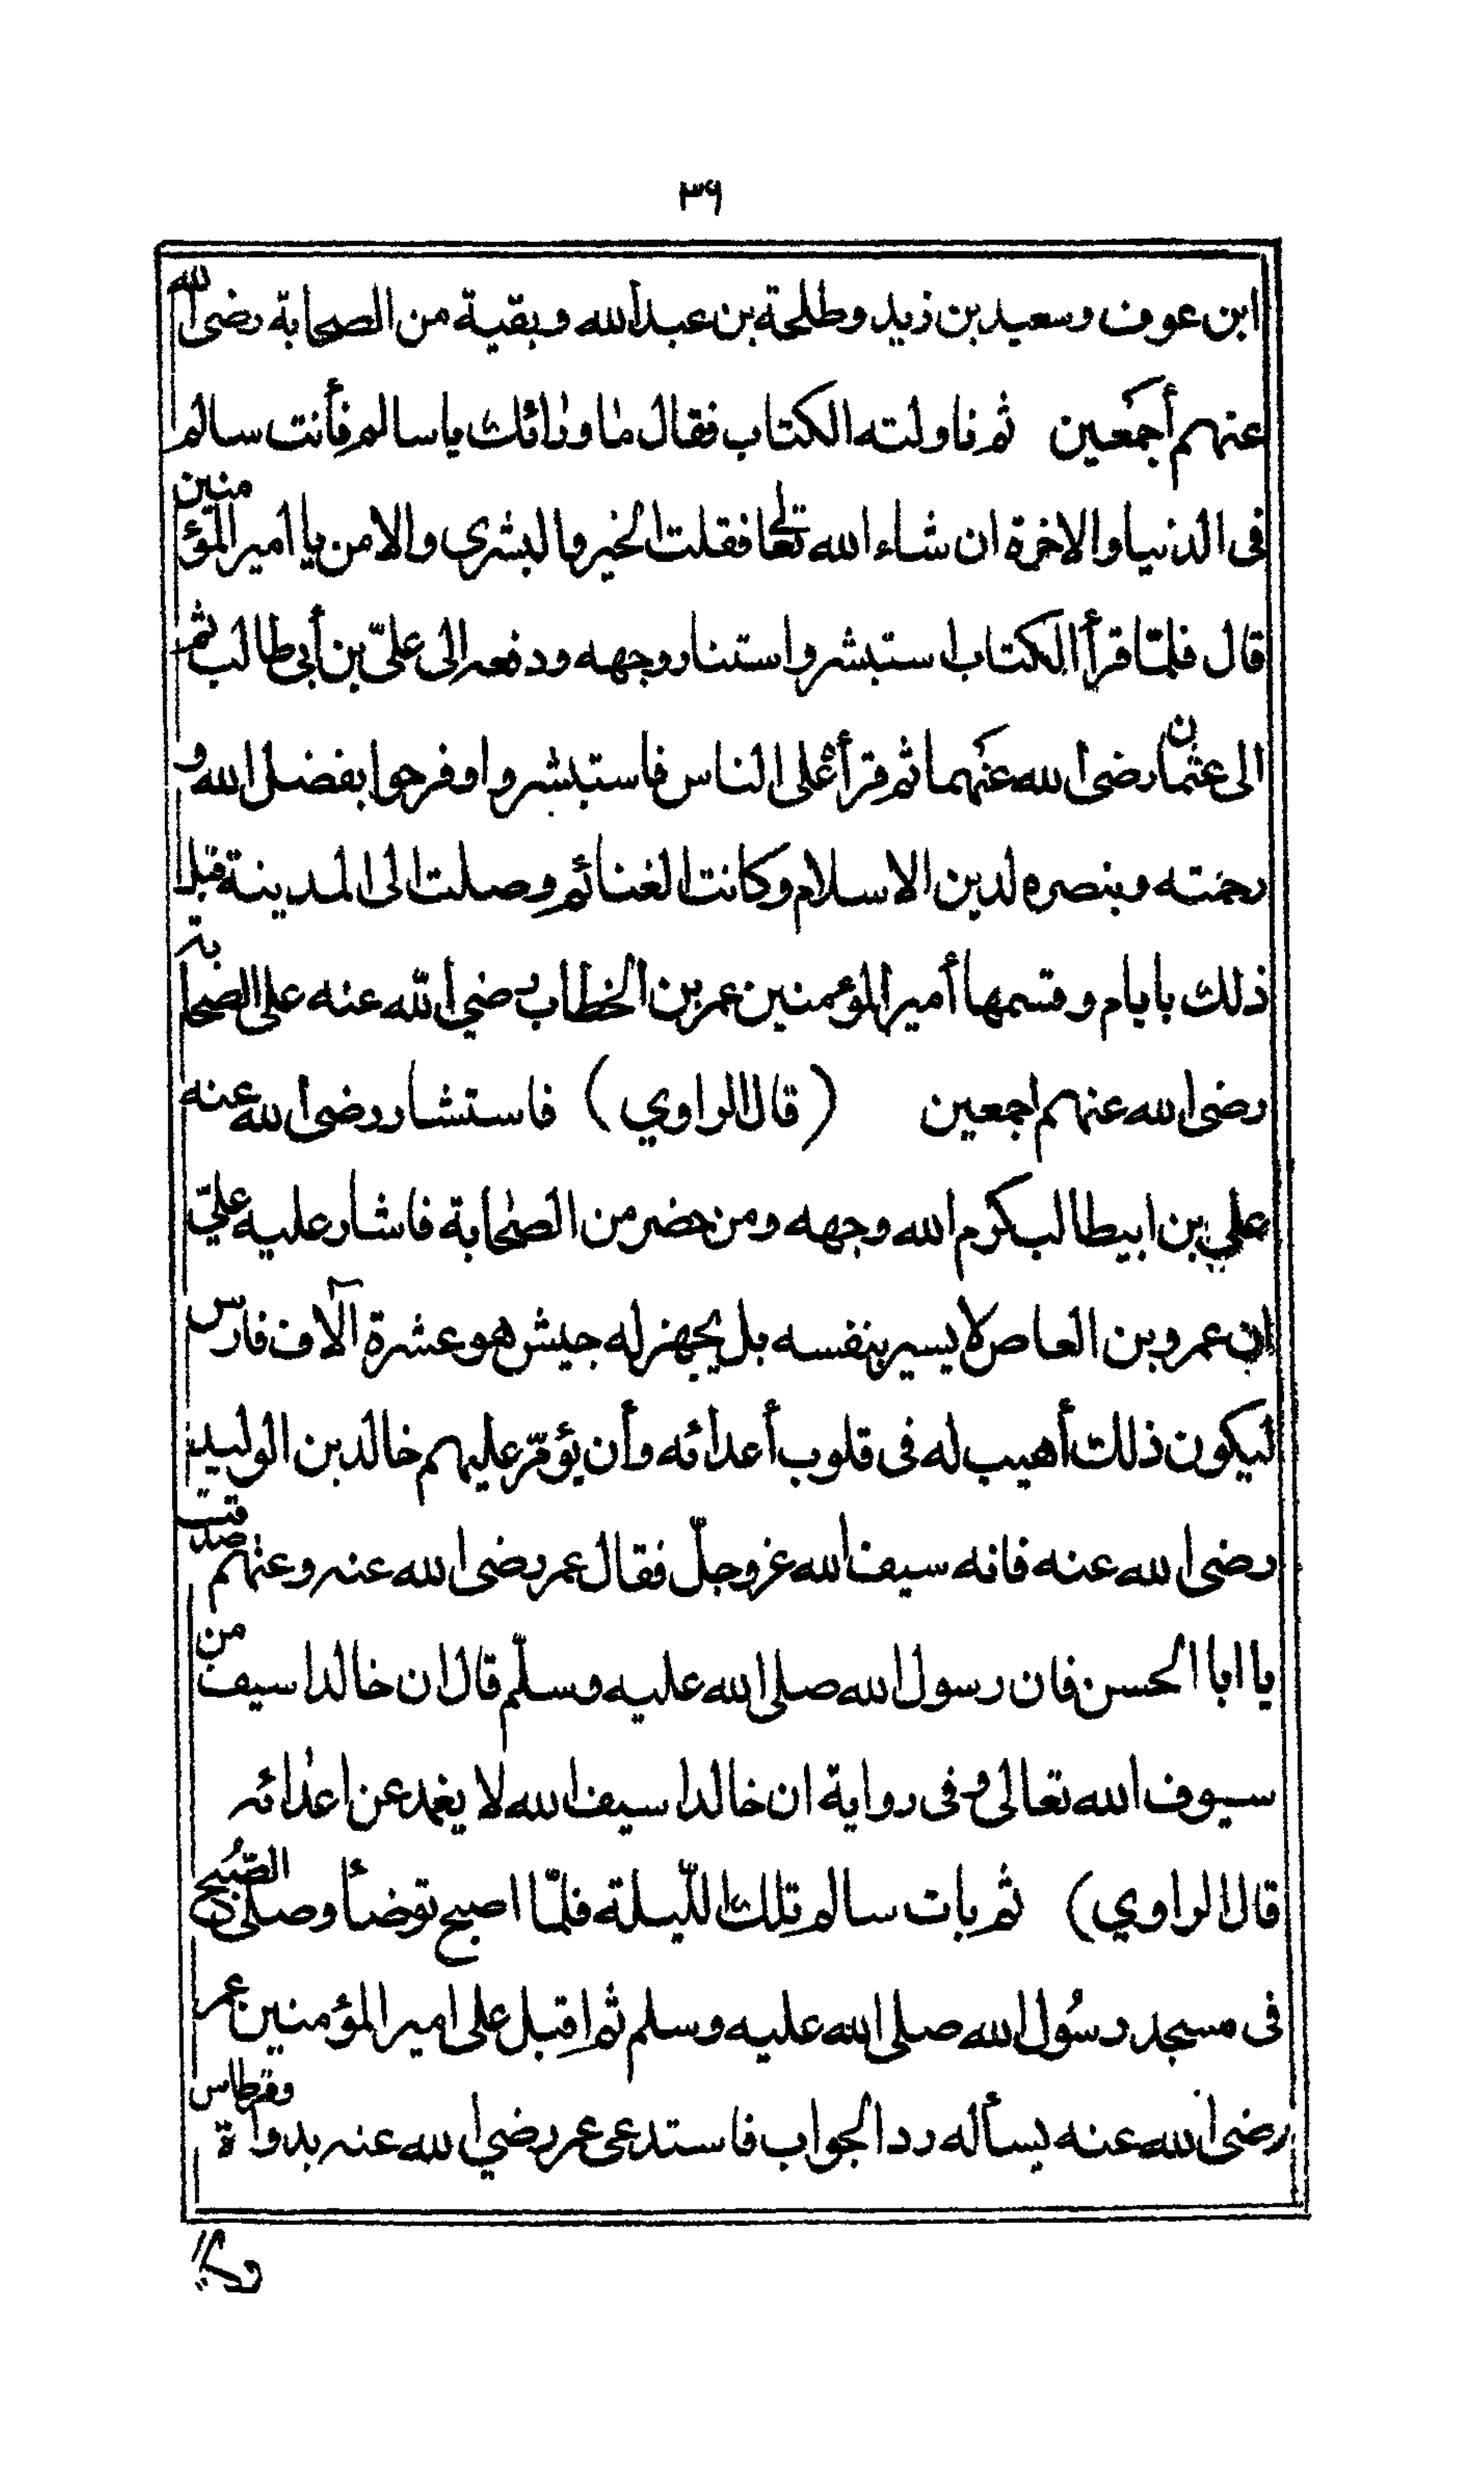 ٣٩
ابن عوف وسعيد بن زيد وطلحة بن عبد الله وبقية من الصحابة رضى الله
عنهم أجمعين ثم ناولته الكتاب فقال ما ورائك يا سالم فأنت سالم
فى الدنيا والاخرة ان شاء الله تعا فقلت الخير والبشرى والامن يا امير المؤمنين
قال فلمّا قرأ الكتاب استبشر واستنار وجهه ودفعه إلى علىّ بن أبى طالب ثم
الى عثمان رضى الله عنهما ثم قرأ على الناس فاستبشروا وفرحوا بفضل الله و
رحمته وبنصره لدين الاسلام وكانت الغنائم وصلت الى المدينة قبل
ذلك بايام وقسمها أمير المؤمنين عمر بن الخطاب رضي الله عنه على الصحابة
رضى الله عنهم اجمعين (قال الراوي) فاستشار رضى الله عنه
علي بن ابيطالب كرم الله وجهه ومن حضر من الصحابة فاشار عليه عليّ
ان عمرو بن العاص لا يسير بنفسه بل يجهز له جيش هو عشرة آلاف فارس
ليكون ذلك أهيب له فى قلوب أعدائه وأن يؤمّر عليهم خالد بن الوليد
رضى الله عنه فانه سيف الله عز وجلّ فقال عمر رضى الله عنه وعنهم صدقت
يا ابا الحسن فان رسول الله صلى الله عليه وسلّم قال ان خالدا سيف من
سيوف الله تعالى وفى رواية ان خالدا سيف الله لا يغمد عن اعدائه
قال الراوي) ثم بات سالم تلك اللّيلة فلمّا اصبح توضأ وصلى الصُبح
فى مسجد رسُول الله صلى الله عليه وسلم ثم اقبل على امير المؤمنين عمر
رضى الله عنه يسأله رد الجواب فاستدعى عمر رضي الله عنه بدواة وقرطاس